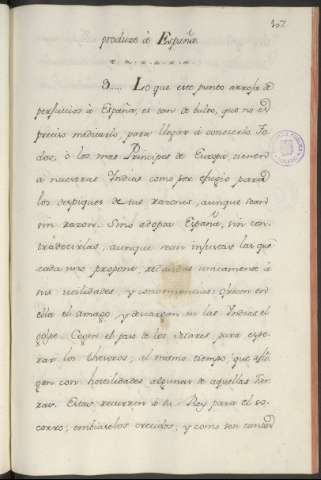 107
produce à España.
3.... Lo que este punto arroja de
perjuicios à España, es tan de bulto, que no es
preciso meditarlo para llegar à conocerlo. To
dos, ò los mas Principes de Europa tienen
à nuestras Indias como por para
los despiques de sus razones, aunque sean
sin razon. Sino adopta España, sin con
tradecirlas, aunque sean injustas las que
cada uno propone, unicamente à
sus utilidades, y conveniencias; en
ella el amago, y descargan en las Indias el
golpe. Cogen el para espe
rar los thesoros, al mismo tiempo, que afli
gen con hostilidades algunas de aquellas Tier
ras. Estas recurren à su Rey para el so
corro; embiaselos crecidos; y como son tantas